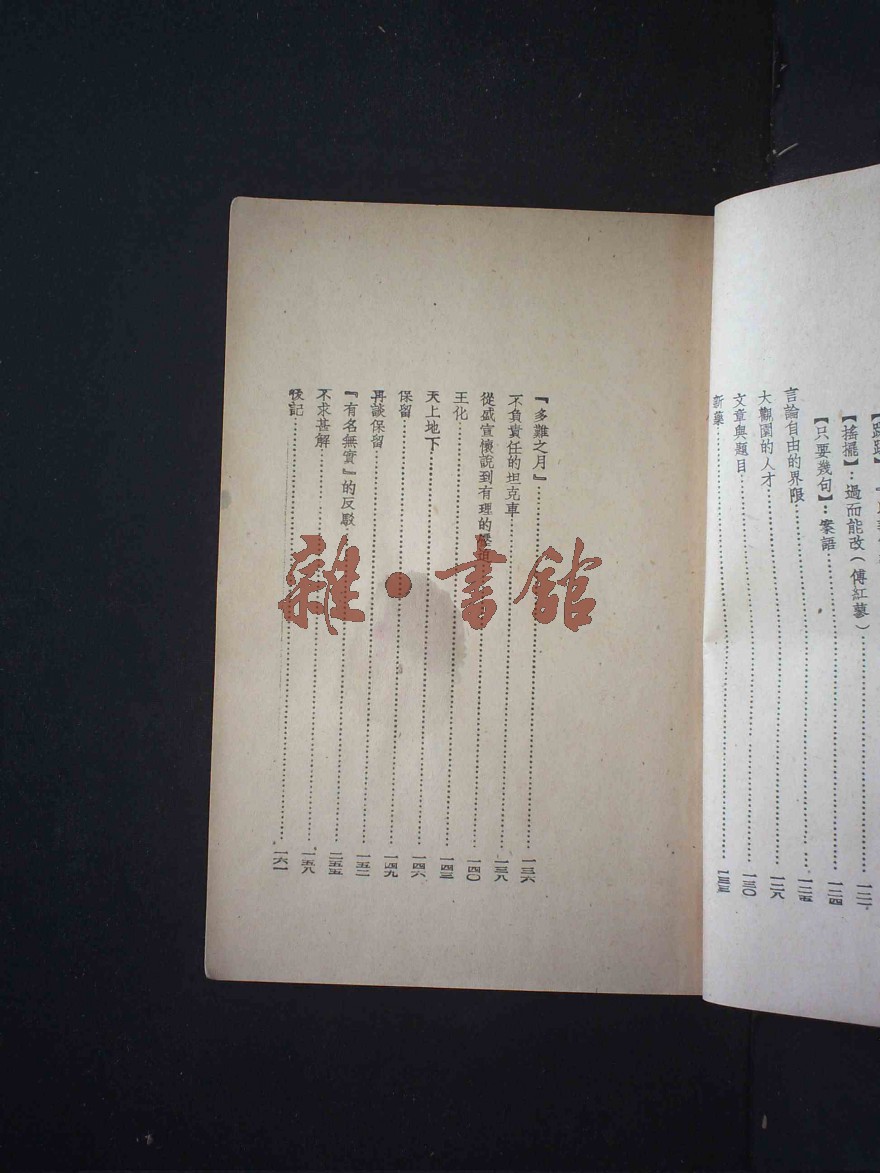 【搖擺】：過而能改（傅紅蓼）……一二二
【只要幾句】：案語……一二四
言論自由的界限……一二五
大觀園的人才……一二八
文章與題目……一三〇
新藥……一三三
『多難之月』……一三六
不負責任的坦克車……一三八
從盛宣懷說到有理的壓迫……一四〇
王化……一四三
天上地下……一四六
保留……一四九
再談保留……一五二
『有名無實』的反駁……一五五
不求甚解……一五八
後記……一六一
雜·書館